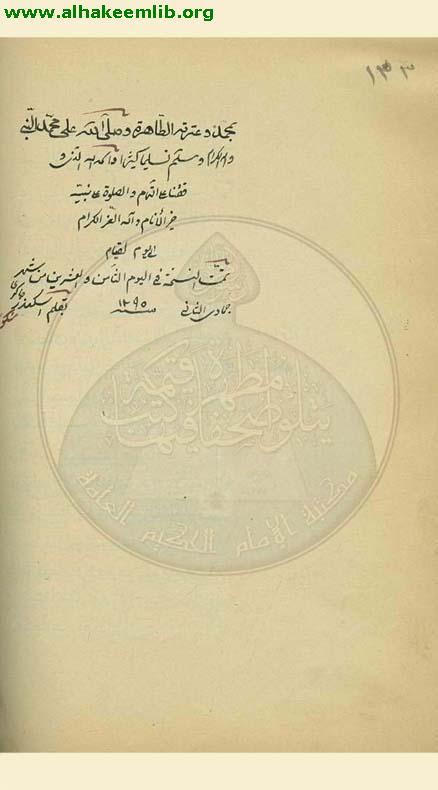 www.alhakeemlib.org
١٣٣
بمحمد وعترته الطاهرة وصلى الله على محمد النبي
واله الكرام وسلم تسليما كثيرا والحمد لله الذي و
فقنا على اتمام والصلوة على نبيه
خير الأنام وآله الغر الكرام
الى يوم القيام
تمت النسخة في اليوم الثامن والعشرين من شهر
جمادى الثاني سنة ١٢٩٥ بقلم
يتلوا صحفا مطهرة فيها كتب قيمة
مكتبة الإمام الحكيم العامة